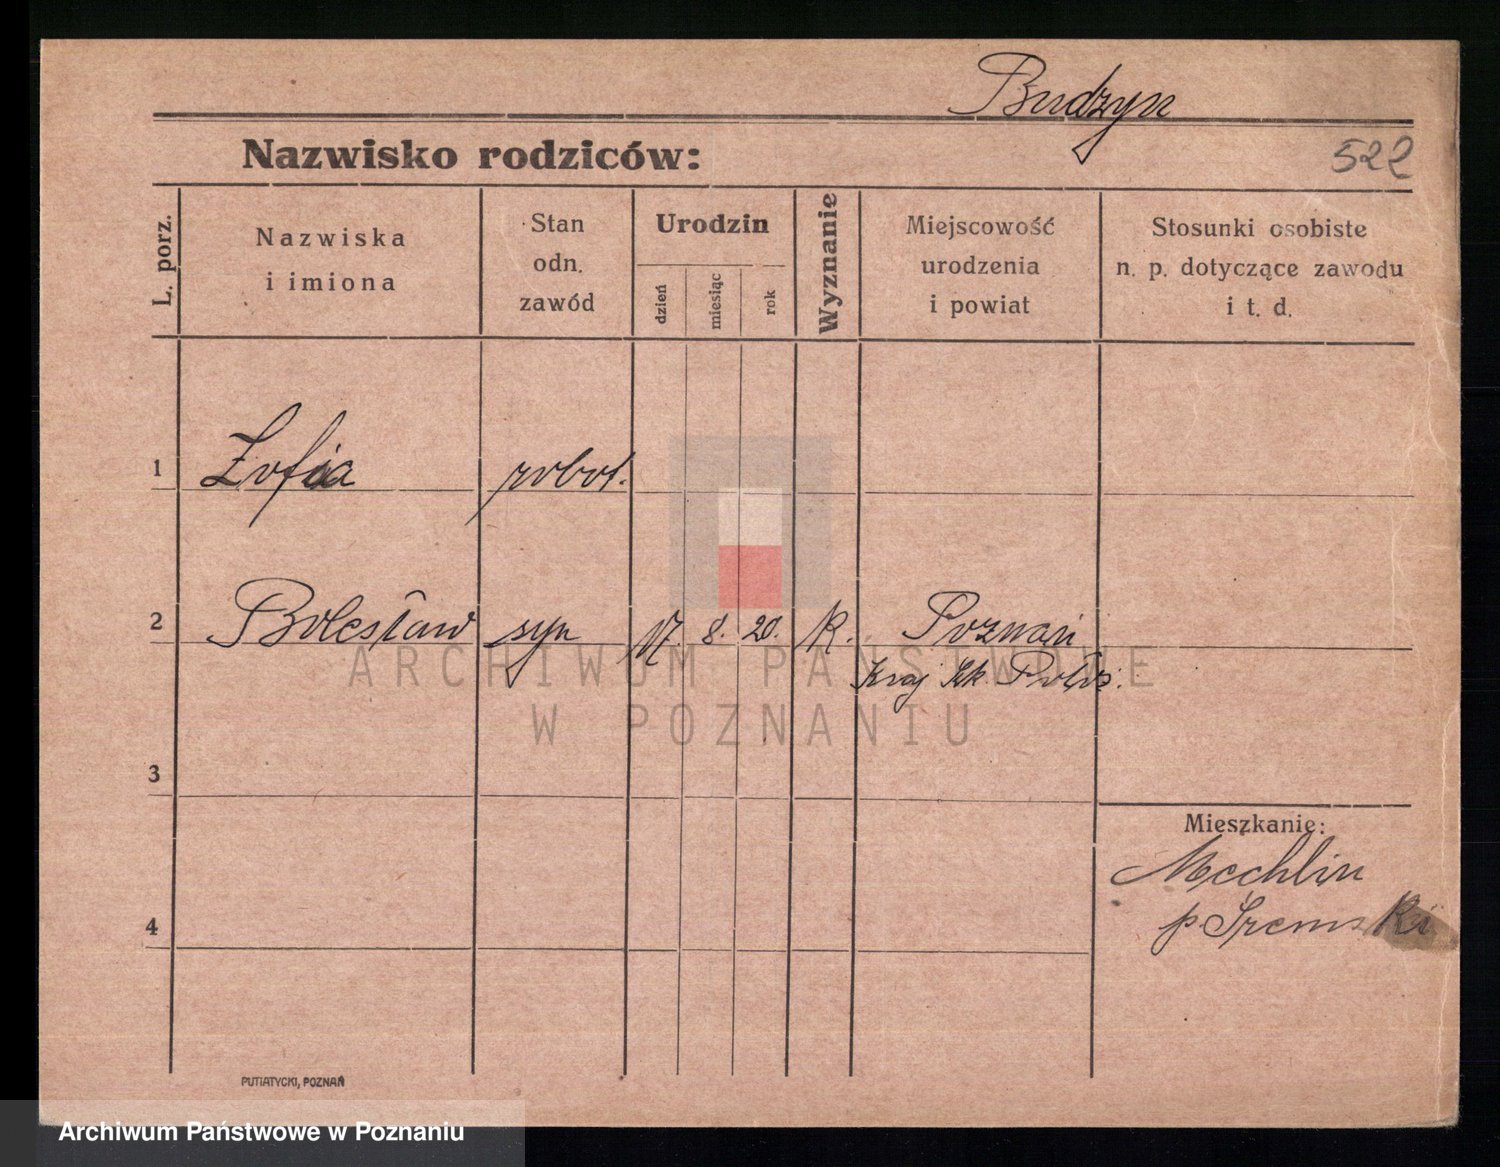 Budzyn
Nazwisko rodziców:
522
L. porz.
Nazwiska
i imiona
Stan
odn.
zawód
Urodzin
dzień
miesiąc
rok
Wyznanie
Miejscowość
urodzenia
i powiat
Stosunki osobiste
n. p. dotyczące zawodu
i t. d.
1 Zofia robot.
2 Bolesław syn 17. 8. 20. R. Poznań
Kraj Szk. Położ.
ARCHIWUM PAŃSTWOWE
W POZNANIU
3
Mieszkanie:
Mechlin
4
p. Śremski
PUTIATYCKI, POZNAŃ
Archiwum Państwowe w Poznaniu